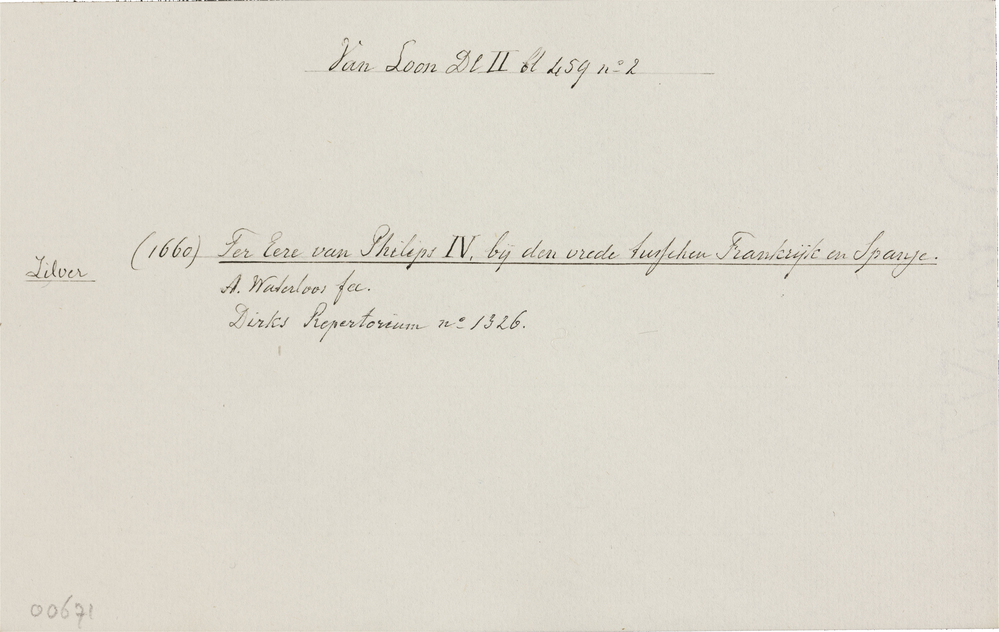 Van Loon Dl II bl 459 nº 2
(1660) Ter Eere van Philips IV, bij den vrede tusschen Frankrijk en Spanje.
Zilver
A. Waterloos fec.
Dirks Repertorium nº 1326.
00671